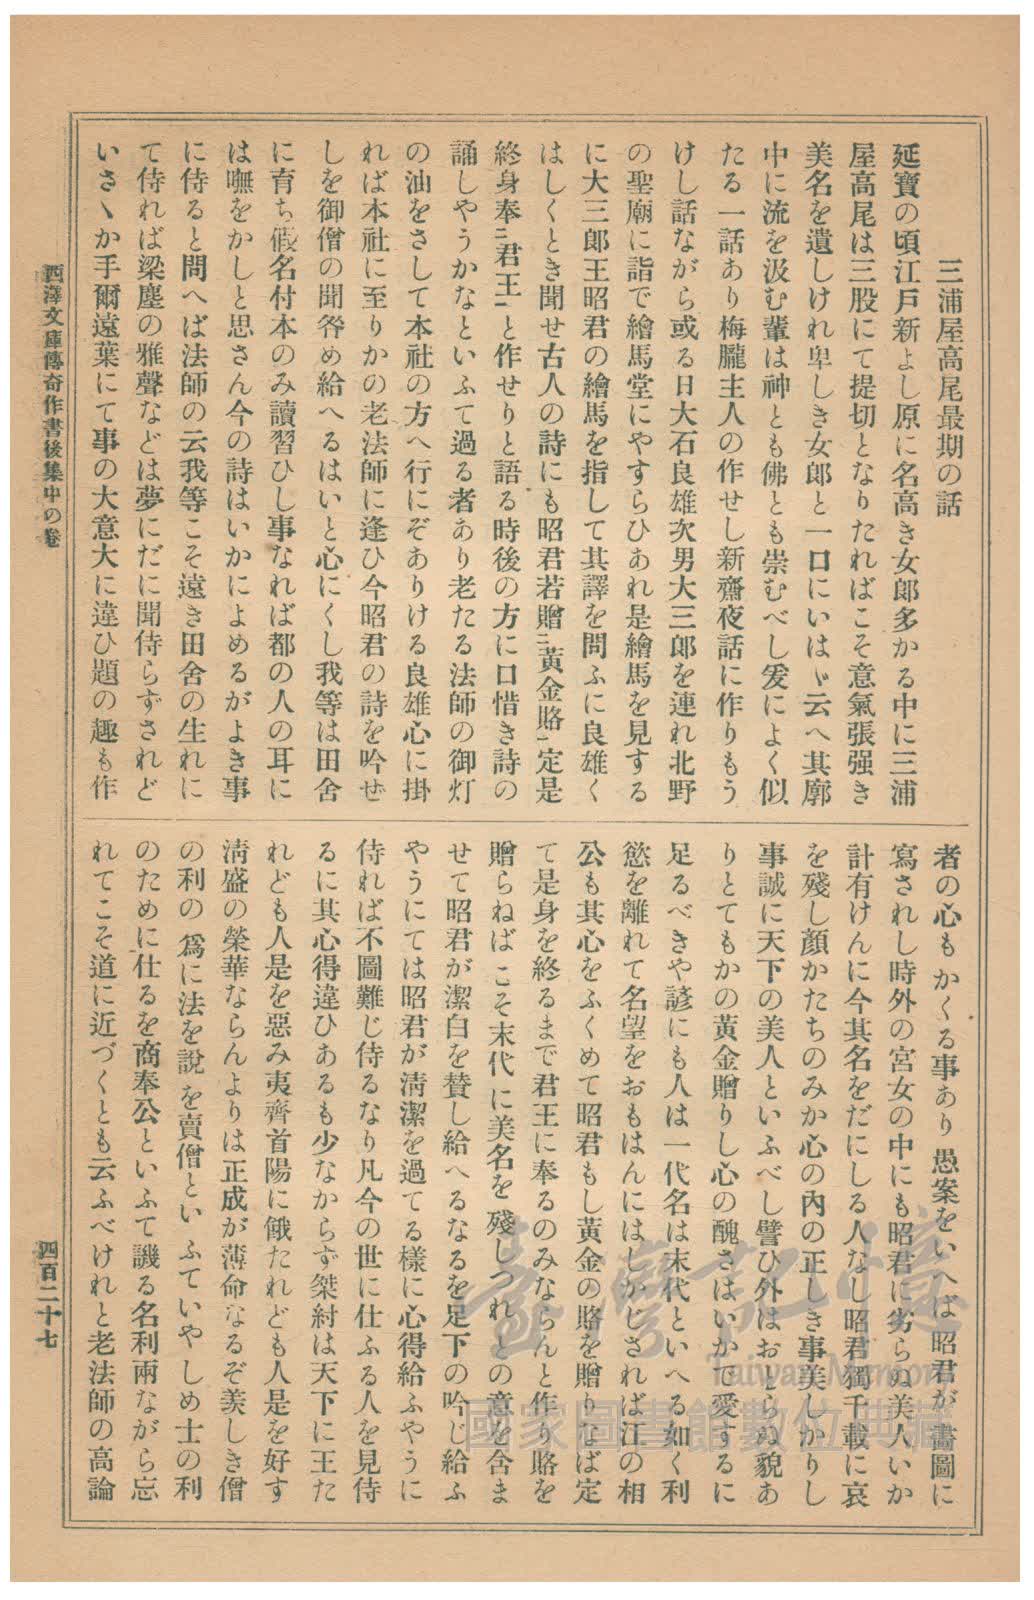 三浦屋高尾最期の話
延寶の頃江戸新よし原に名高き女郎多かる中に三浦
屋高尾は三股にて提切となりたればこそ意氣張强き
美名を遺しけれ卑しき女郎と一口にいはゞ云へ其廓
中に流を汲む輩は神とも佛とも崇むべし爰によく似
たる一話あり梅朧主人の作せし新齋夜話に作りもう
けし話ながら或る日大石良雄次男大三郎を連れ北野
の聖廟に詣で繪馬堂にやすらひあれ是繪馬を見する
に大三郎王昭君の繪馬を指して其譯を問ふに良雄く
はしくとき聞せ古人の詩にも昭君若贈二黃金賂一定是
終身奉二君王一と作せりと語る時後の方に口惜き詩の
誦しやうかなといふて過る者あり老たる法師の御灯
の油をさして本社の方へ行にぞありける良雄心に掛
れば本社に至りかの老法師に逢ひ今昭君の詩を吟ぜ
しを御僧の聞咎め給へるはいと心にくし我等は田舍
に育ち假名付本のみ讀習ひし事なれば都の人の耳に
は嘸をかしと思さん今の詩はいかによめるがよき事
に侍ると問へば法師の云我等こそ遠き田舍の生れに
て侍れば梁塵の雅聲などは夢にだに聞侍らずされど
いさゝか手爾遠葉にて事の大意大に違ひ題の趣も作
者の心もかくる事あり愚案をいへば昭君が畵圖に
寫されし時外の宮女の中にも昭君に劣らぬ美人いか
計有けんに今其名をだにしる人なし昭君獨千載に哀
を殘し顏かたちのみか心の內の正しき事美しかりし
事誠に天下の美人といふべし譬ひ外はおとらぬ貌あ
りとてもかの黃金贈りし心の醜さはいかで愛するに
足るべきや諺にも人は一代名は末代といへる如く利
慾を離れて名望をおもはんにはしかじされば江の相
公も其心をふくめて昭君もし黃金の賂を贈りなば定
て是身を終るまで君王に奉るのみならんと作り賂を
贈らねばこそ末代に美名を殘しつれとの意を含ま
せて昭君が潔白を賛し給へるなるを足下の吟じ給ふ
やうにては昭君が淸潔を過てる樣に心得給ふやうに
侍れば不圖難じ侍るなり凡今の世に仕ふる人を見侍
るに其心得違ひあるも少なからず桀紂は天下に王た
れども人是を惡み夷齊首陽に餓たれども人是を好す
淸盛の榮華ならんよりは正成が薄命なるぞ羨しき僧
の利の爲に法を說を賣僧といふていやしめ士の利
のために仕るを商奉公といふて譏る名利兩ながら忘
れてこそ道に近づくとも云ふべけれと老法師の高論
西澤文庫傳奇作書後集中の卷
四百二十七
臺灣記憶
Taiwan Memory
國家圖書館數位典藏